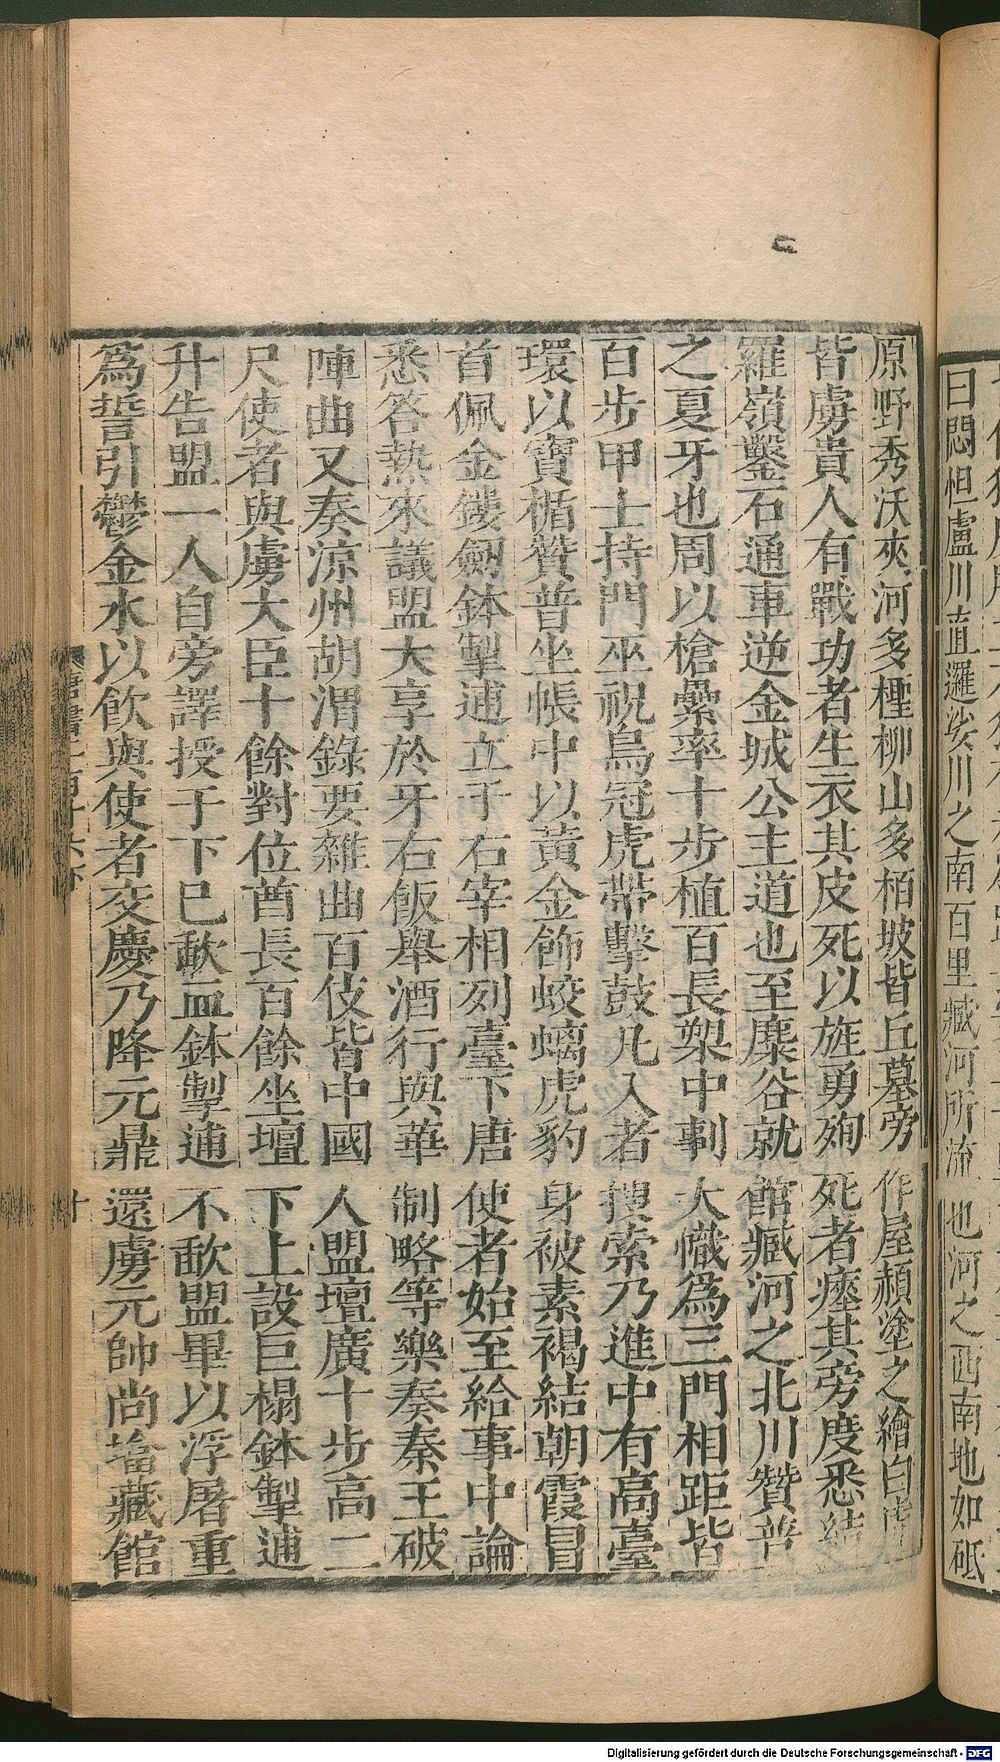 曰悶怛盧川直邏娑川之南百里臧河所流也河之西南地如砥
原野秀沃夾河多檉柳山多栢坡皆丘墓旁作屋赬塗之繪白虎
皆虜貴人有戰功者生衣其皮死以旌勇殉死者瘞其旁度悉結
羅嶺鑿石通車逆金城公主道也至麋谷就館臧河之北川贊普
之夏牙也周以槍纍率十步植百長槊中剚大幟爲三門相距皆
百步甲士持門巫祝鳥冠虎帶擊鼓凡入者搜索乃進中有高臺
環以寶楯贊普坐帳中以黃金飾蛟螭虎豹身被素褐結朝霞冒
首佩金鏤劒鉢掣逋立于右宰相列臺下唐使者始至給事中論
悉答熱來議盟大享於牙右飯舉酒行與華制略等樂奏秦王破
陣曲又奏涼州胡渭錄要雜曲百伎皆中國人盟壇廣十步高二
尺使者與虜大臣十餘對位酋長百餘坐壇下上設巨榻鉢掣逋
升告盟一人自旁譯授于下已歃血鉢掣逋不歃盟畢以浮屠重
爲誓引鬱金水以飮與使者交慶乃降元鼎還虜元帥尚塔藏館
唐書二百十六下
十
Digitalisierung gefördert durch die Deutsche Forschungsgemeinschaft - DFG